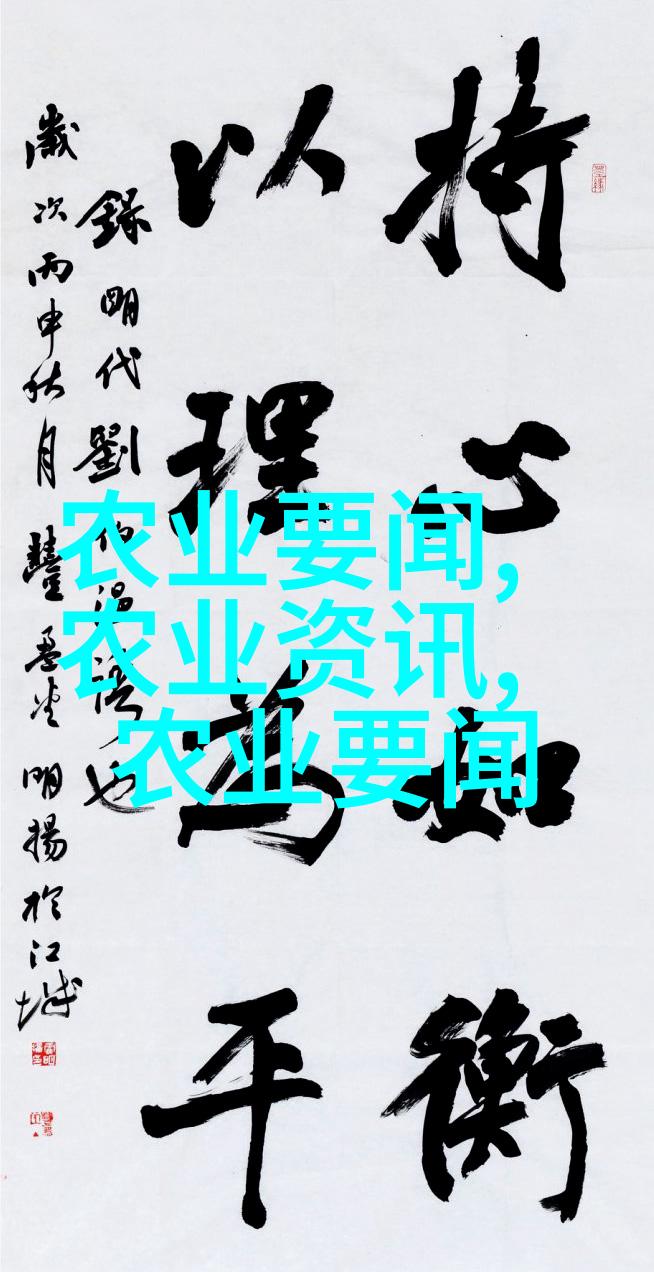 持心如衡
以理为平
錄明代劉伯温語也
歲次丙申秋月
明揚於江城
农业要闻,
农业资讯,
农业要闻